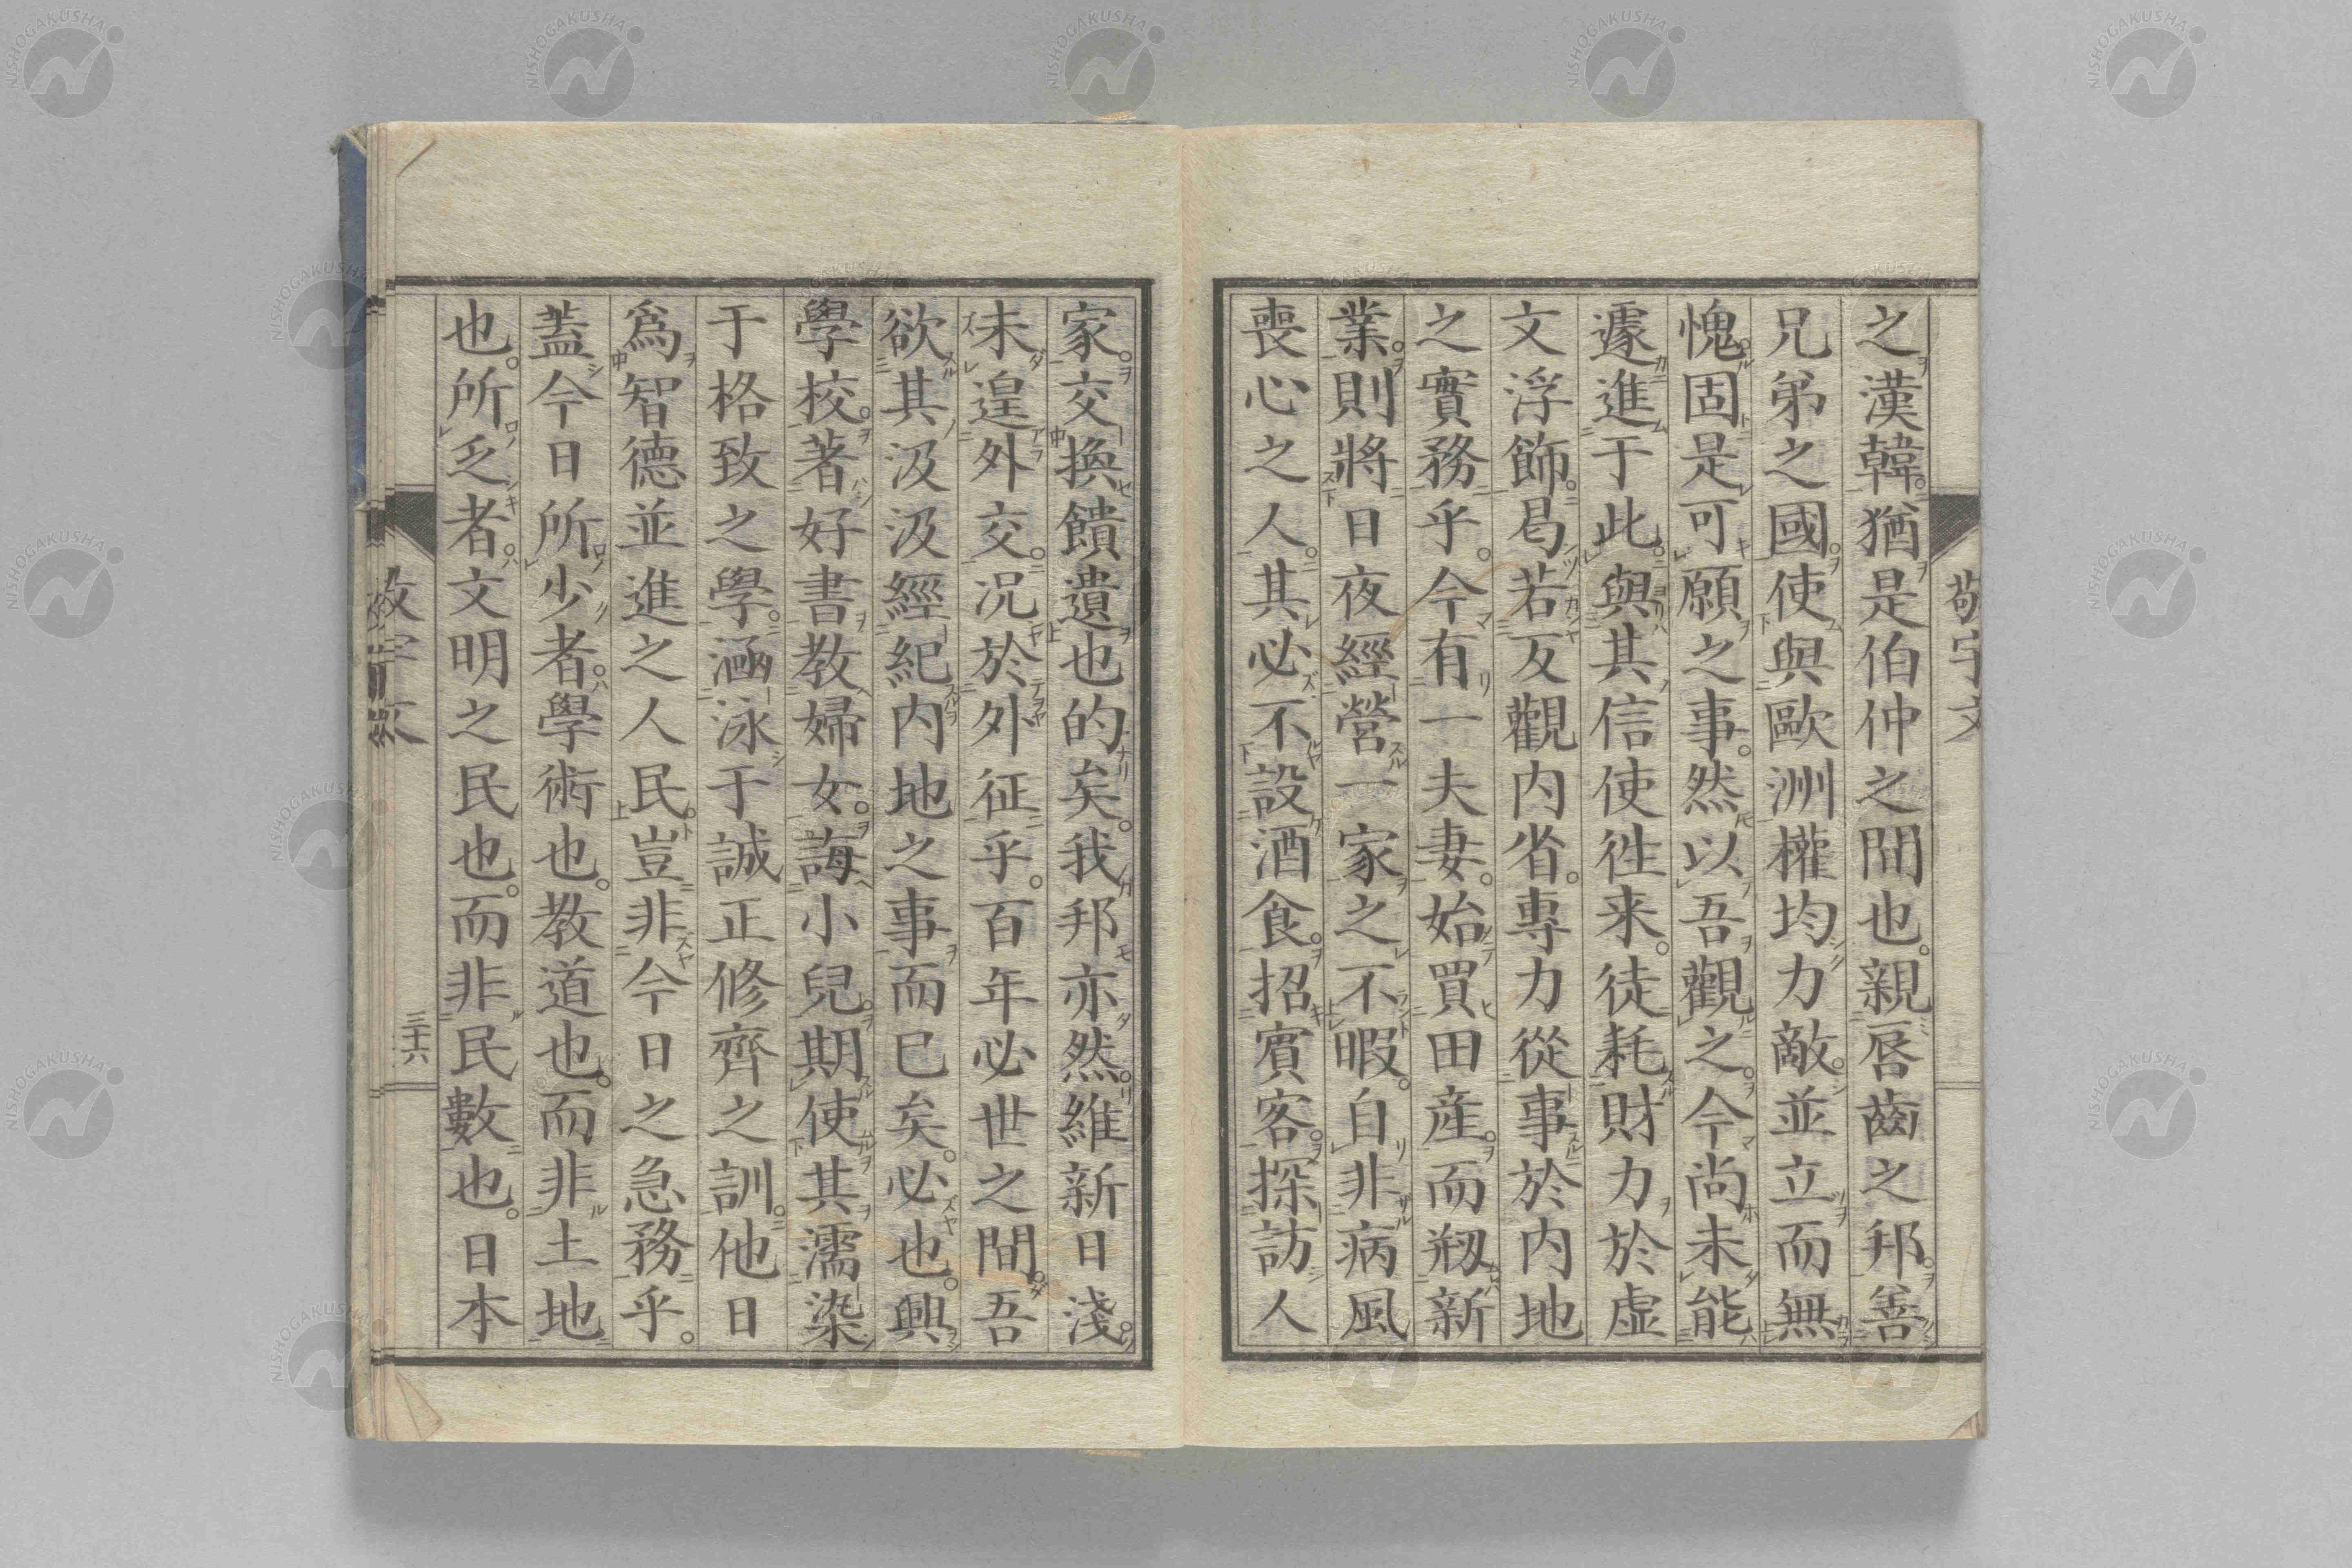 之漢韓。猶是伯仲之間也。親唇齒之邦。善
兄弟之國。使與歐洲權均力敵。並立而無
愧。固是可願之事。然以吾觀之。今尚未能
遽進于此。與其信使徃来。徒耗財力於虚
文浮飾。曷若反觀内省。專力從事於内地
之實務乎。今有一夫妻。始買田産。而剏新
業。則將日夜經營一家之不暇。自非病風
喪心之人。其必不設酒食。招賓客。探訪人
家。交換饋遺也的矣。我邦亦然。維新日淺。
未遑外交。况於外征乎。百年必世之間。吾
欲其汲汲經紀内地之事而已矣。必也。興
學校。著好書教婦女。誨小兒。期使其濡染
于格致之學。涵泳于誠正修齊之訓。他日
爲智德並進之人民。豈非今日之急務乎。
蓋今日所少者。學術也。教道也。而非土地
也。所乏者。文明之民也。而非民數也。日本
敬宇文
三十六